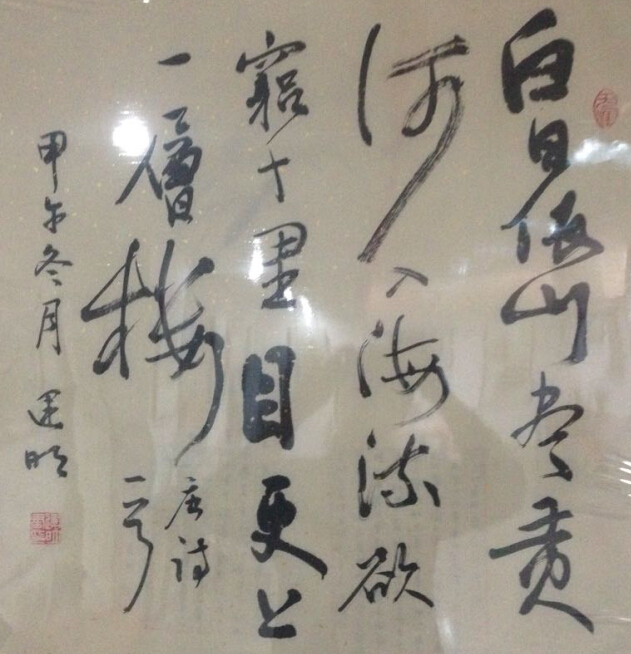 白日依山尽黄
河入海流欲
窮千里目更上
一層楼
唐诗
一首
甲午冬月
建明